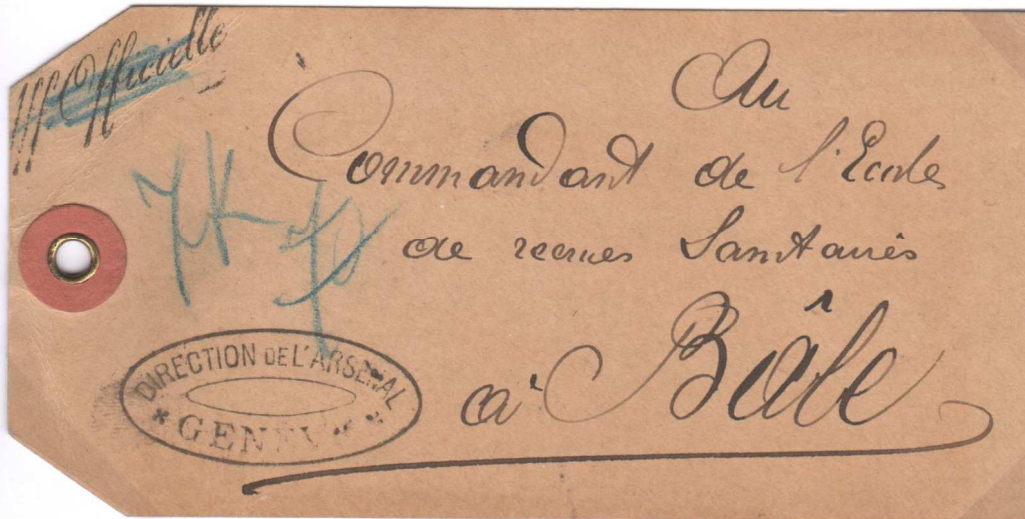 Aff Officielle
Au
Commandant de l'Ecole
de recrues Sanitaires
à Bâle
DIRECTION DE L'ARSENAL
* GENEVE *